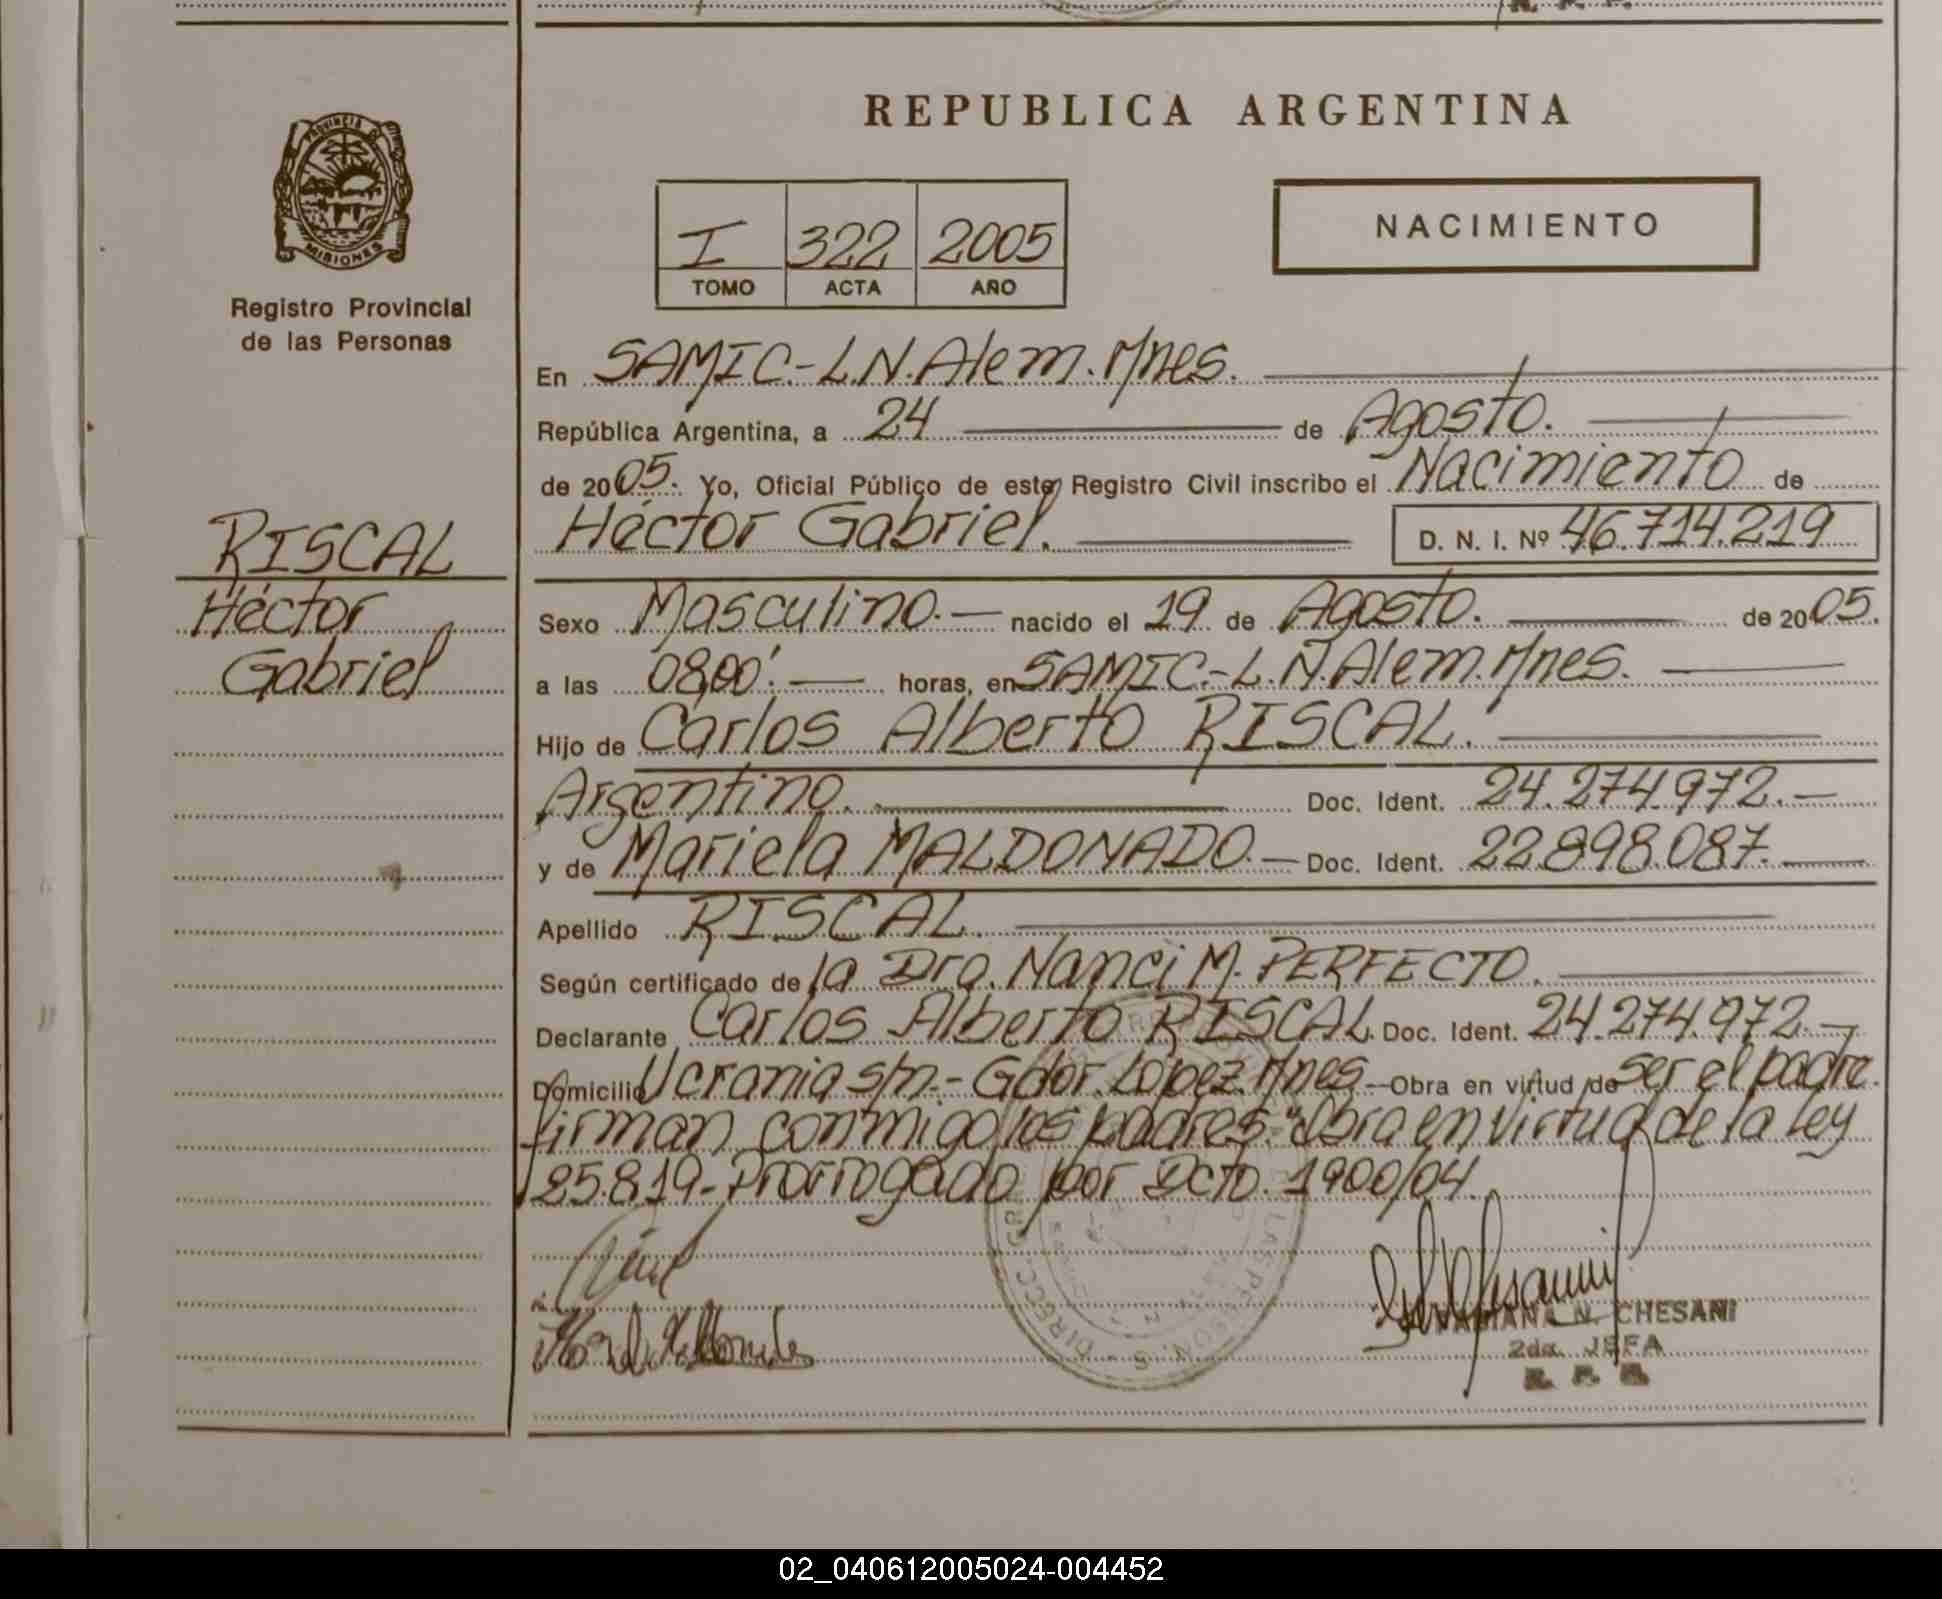 REPUBLICA ARGENTINA
PROVINCIA DE
MISIONES
Registro Provincial
de las Personas
I 322 2005
TOMO ACTA AÑO
NACIMIENTO
En SAMIC.-L.N.Alem.Mnes.
República Argentina, a 24 de Agosto.
de 2005. Yo, Oficial Público de este Registro Civil inscribo el Nacimiento de
Héctor Gabriel. D. N. I. Nº 46.714.219
RISCAL
Héctor
Gabriel
Sexo Masculino.- nacido el 19 de Agosto. de 2005.
a las 08,00'.- horas, en SAMIC.-L.N.Alem.Mnes.
Hijo de Carlos Alberto RISCAL.
Argentino. Doc. Ident. 24.274.972.-
y de Mariela MALDONADO.- Doc. Ident. 22.898.087.
Apellido RISCAL.
Según certificado de la Dra. Nanci M. PERFECTO.
Declarante Carlos Alberto RISCAL. Doc. Ident. 24.274.972.-
Domicilio Ucrania s/n.- Gdor. López. Mnes.- Obra en virtud de ser el padre.
firman conmigo los padres."Obra en virtud de la Ley
25.819.-Prorrogado por Dcto. 1900/04.
FABIANA N. CHESANI
2da. JEFA
R. P. P.
02_040612005024-004452